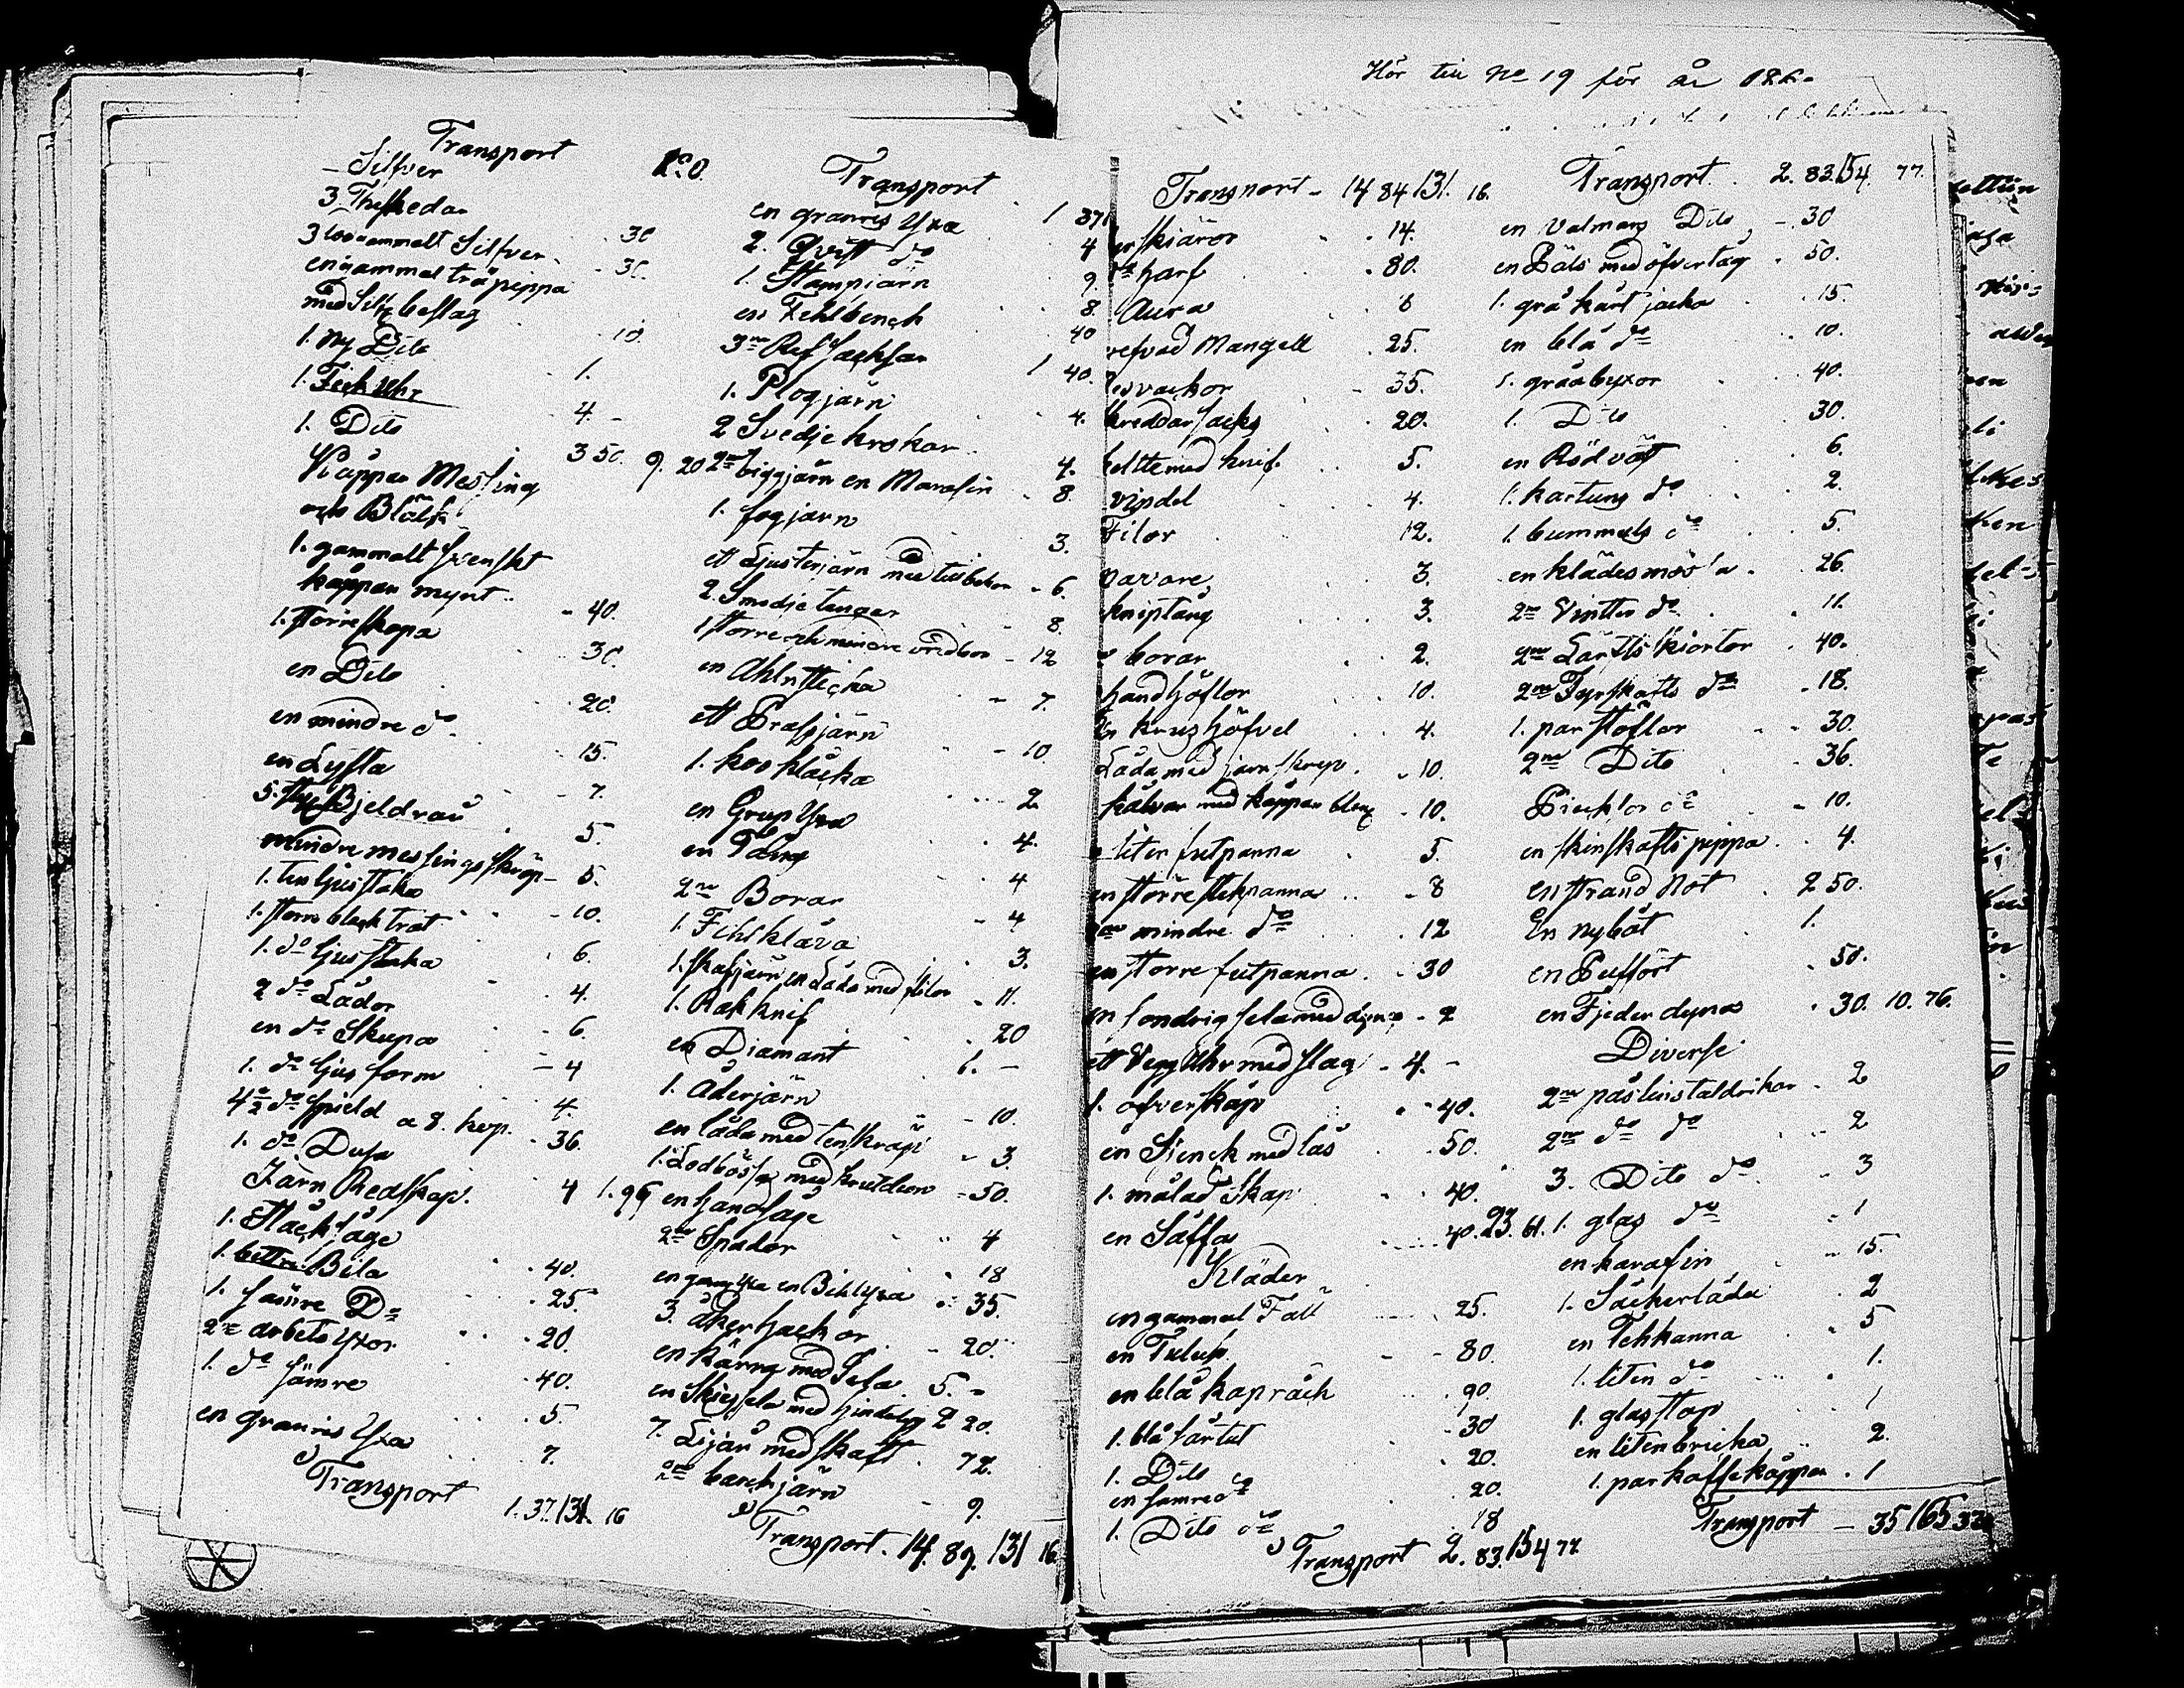 Hör till No 19 för år 186
Transport 120.
Silfver
3. Theskedar 30
3 lod gammalt Silfver 30.
en gammal träpippa
med Silf. beslag 10.
1. ny Dito 1.
1. Fick Uhr 4. -
1. Dito 3 50. 9. 20
Kåppar Messing
och Bläck
1. gammalt Svenskt
kåppar mynt - 40.
1. större skopa 30.
en Dito 20.
en mindre do 15.
en Lysta 7.
5. 5.
mindre messings skräp - 5.
1. ten ljusstaka 10.
1. större bleck trat 6.
1. do ljusstaka 4.
2 do Lådor 6.
en do Skupa - 4
1. do ljus form 4.
4 do spield a 8. kop. 36.
1. do Dosa 4 1.96
Järn Redskap.
1. Stäcksåge 40.
1. bettre Bila 25.
1. sämre Do 20.
2ne arbets yxor 40.
1. do sämre 5.
en granris Yxa 7.
Transport 1.37.131. 16
Transport 1 37
en granris Yxa 4
2. Qvist do 9.
1. Stampjärn 8.
en Fehlbench 40
3ne Ref sacksar 1 40.
1. Plogjärn 4.
2 Svedje krokar 4.
2ne biggjärn en Marasin 8.
1. fogjarn 3.
ett Ljusterjärn med tillbehör - 6.
2. Smedje tenger - 8.
1 större och mindre vridbor - 12
en Ahlnsticka - 7.
ett Brassjärn - 10
1. koo klacka 2.
en Grup Yxa 4.
en Tång 4
2ne Borar - 4
1. Fihlklåva 3.
1. skafjärn en Låda med filar - 11.
1. Rakknif 20
en Diamant 6. -
1. Åderjärn - 10.
en låda med tenskräp - 3.
1. Lodbössa med krutdon - 50.
en handsåge 4
2ne Spador 18
en gamyxa en Bihlyxa 35.
3. åkerhackor - 20.
en kärna med Sela 5. -
en med 2 20.
7. Lijar med skaft 72.
2ne bandkjärn - 9.
Transport. 14. 89. 131 16.
Transport - 14 84 131. 16.
skiäror 14.
harf 80.
Aura 6
refvad Mangell 25.
vackor 35.
kreddarsacks 20.
beltte med knif. 5.
vindel 4.
Filar 12.
navare, 3.
kniptång 3.
borar 2.
handhöflor 10.
en krughöfvel 4.
Låda med järn skrap - 10.
kålvar med kåppar - 10.
liten fetpanna 5.
en större stekpanna - 8
mindre do 12
en större fetpanna - 30
en sondrig sela med dyna - 2
ett Vegg Uhr med slag - 4. -
1. ofverskåp 40.
en Sienck med lås 50.
1. målad skap 40.
en Såffa 40. 23. 61.
Kläder
en gammal Fäll 25.
en Tulup 80.
en blå kapråck 90.
1. blå sårtut 30
1. Dito 20.
en samre do 20.
1. Dito do 18
Transport 2. 83. 154 77
Transport 2. 83. 154. 77.
en valmars Dito - 30
en Päls med öfvertåg 50.
1. grå kårt jacka 15.
en blå do 10.
1. gråa byxor 40.
1. Dito 30.
en Röd väst 6.
1. kartuns do 2.
1. bummuls do 5.
en klädes mössa 26.
2ne Vintter do 11.
2ne Lärfts skiortor 40.
2ne Fyrskafts do 18.
1. par stöflor 30.
2ne Dito 36.
Piecksor do 10.
en skinskafts pippa 4.
en strand Not 2 50.
En ny båt 1.
en Puffört 50.
en Fjeder dyna 30. 10. 76.
Diverse
2ne påslins taldrikar 2
2ne do do 2
3. Dito do 3
1. glas do 1
en karafin 15.
1. Såckerlåda 2
en Tehkanna 5
1. liten do 1.
1. glasstop 1
en liten bricka 2.
1. par kaffekåppar 1
Transport - 35 165 53